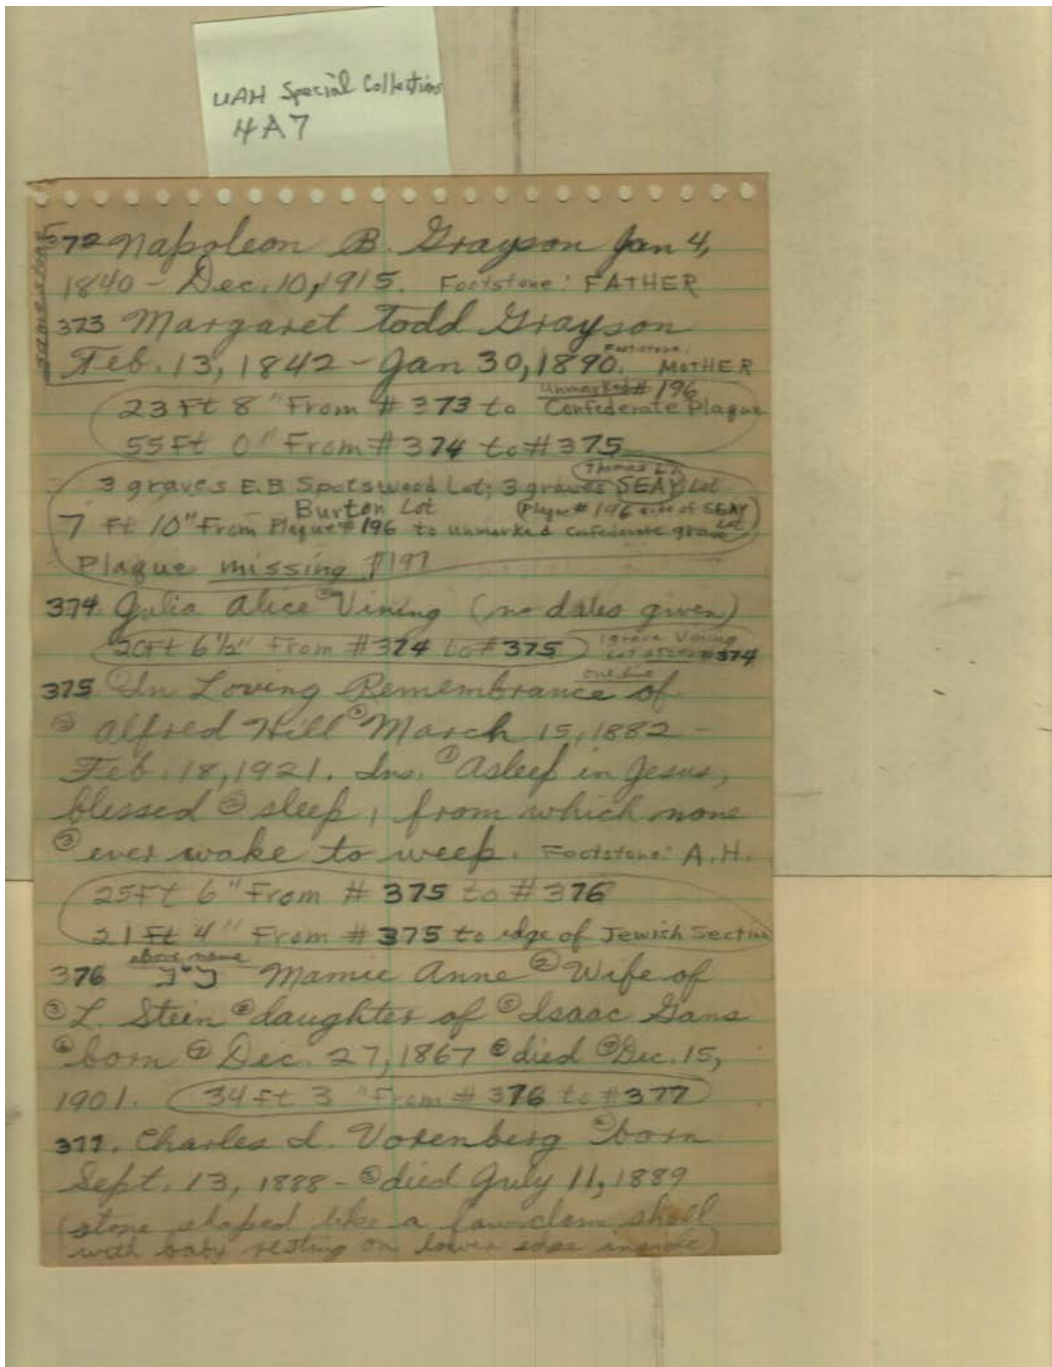 UAH Special Collections
4A7
same stone
372 Napoleon B. Grayson Jan 4,
1840 - Dec. 10, 1915. Footstone: FATHER
373 Margaret Todd Grayson
Feb. 13, 1842 - Jan 30, 1890. Footstone: MOTHER
23 Ft 8" From #373 to Unmarked #196 Confederate Plaque
55 Ft 0" From #374 to #375
3 graves E.B Spotswood Lot; 3 graves SEAY Lot
Burton Lot (Plaque #196 side of SEAY Lot)
7 Ft 10" From Plaque #196 to unmarked Confederate grave
Plaque missing #197
374. Julia Alice ② Vining (no dates given)
20 Ft 6½" From #374 to #375 1 grave Vining
Lot after #374
one line
375 ① In Loving Remembrance of
② Alfred Hill ③ March 15, 1882 -
Feb. 18, 1921. Ins. ① Asleep in Jesus,
blessed ② sleep, from which none
③ ever wake to weep. Footstone: A.H.
25 Ft 6" From #375 to #376
21 Ft 4" From #375 to edge of Jewish Section
above name
376 Mamie Anne ② Wife of
③ L. Stein ④ daughter of ⑤ Isaac Gans
⑥ born ⑦ Dec. 27, 1867 ⑧ died ⑨ Dec. 15,
1901. 34 Ft 3" From #376 to #377
377. Charles L. Vorenberg ② born
Sept. 13, 1888 - ③ died July 11, 1889
(stone shaped like a clam shell
with baby resting on lower edge inside)